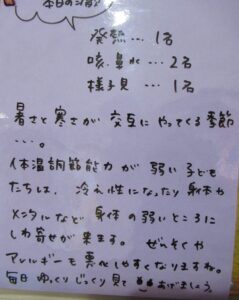 本日の
発熱… 1名
咳.鼻水… 2名
様子見… 1名
暑さと寒さが 交互に やってくる 季節
…。
体温調節能力が 弱い子ども
たちは、冷え性になったり 身体や
メンタルなど 身体の弱いところに
しわ寄せが来ます。 ぜんそくや
アレルギーも 悪化しやすくなりますね。
毎日 ゆっくりじっくり 見て あげましょう